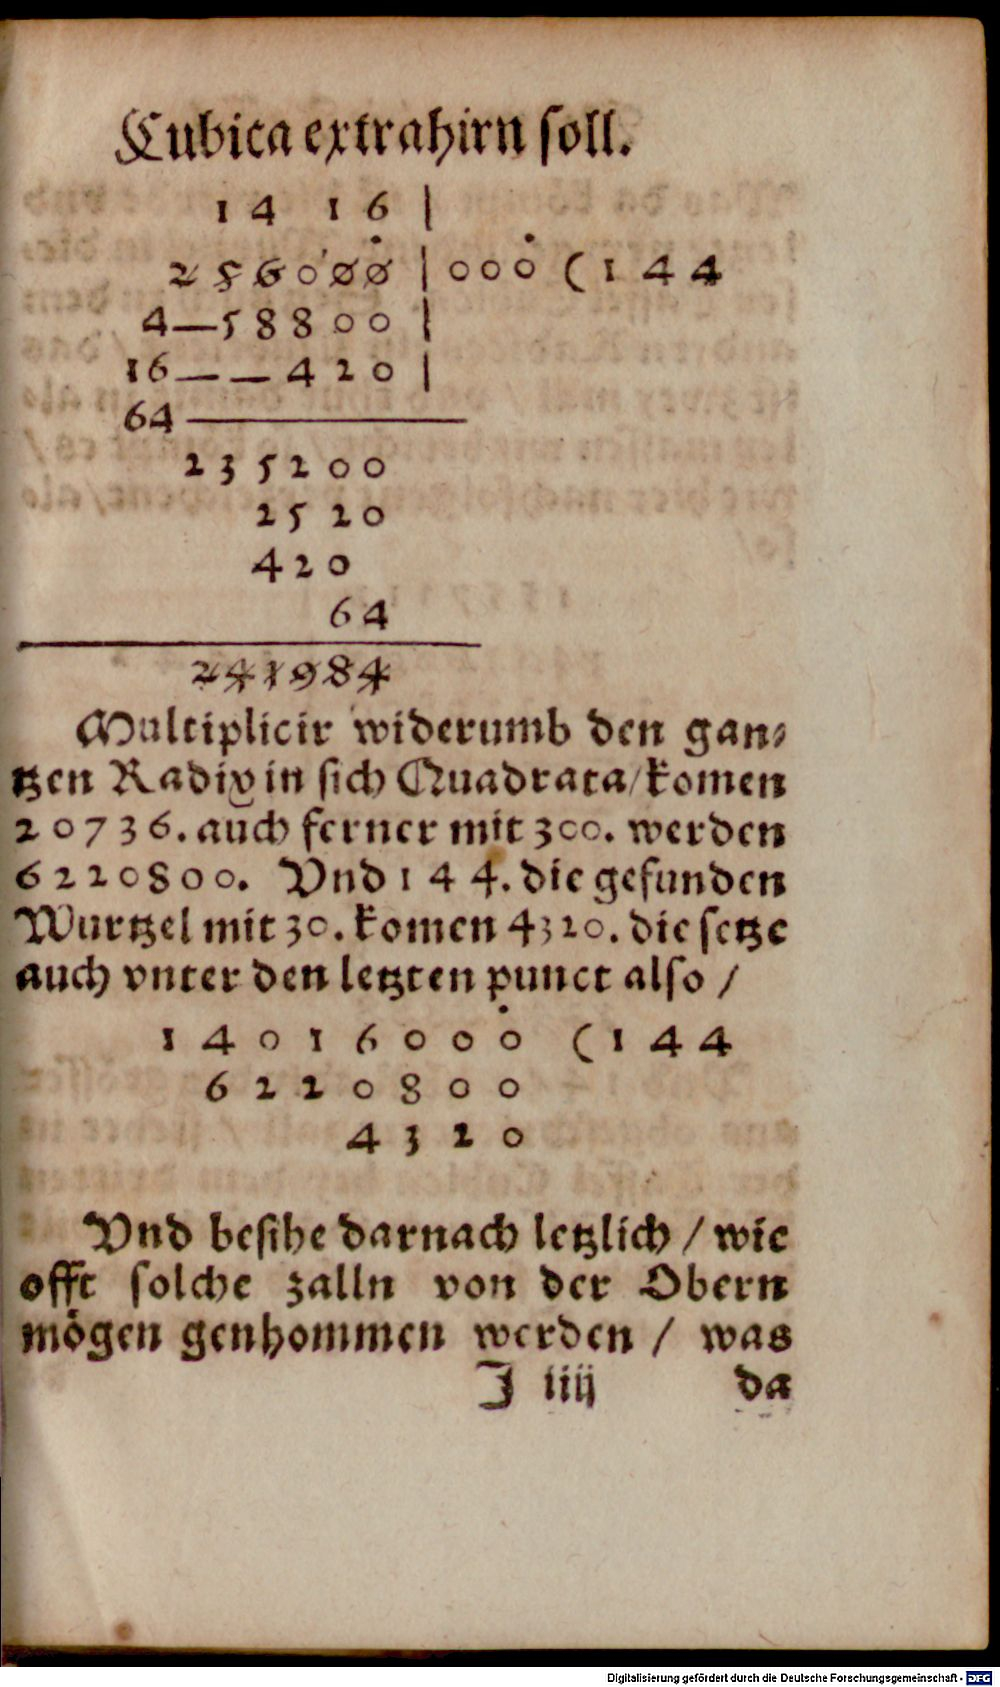 Cubica extrahirn soll.
14 16 |
256000 | 000 ( 144
4—58800 |
16——420 |
64
235200
2520
420
64
241984
Multiplicir widerumb den gan⸗
tzen Radix in sich Quadrata / komen
20736. auch ferner mit 300. werden
6220800. Vnd 144. die gefunden
Wurtzel mit 30. komen 4320. die setze
auch vnter den letzten punct also /
14016000 ( 144
6220800
4320
Vnd besihe darnach letzlich / wie
offt solche zalln von der Obern
mögen genhommen werden / was
J iiij da
Digitalisierung gefördert durch die Deutsche Forschungsgemeinschaft - DFG